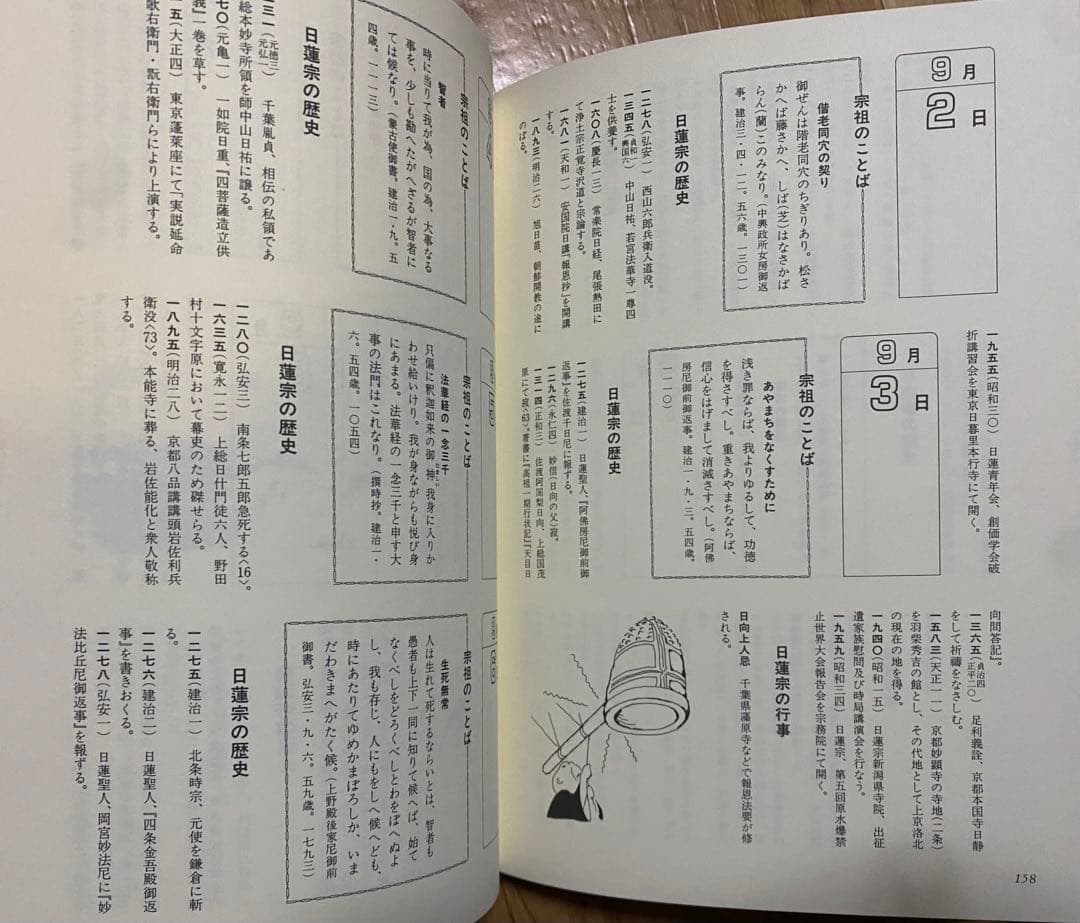 9月
2日
宗祖のことば
偕老同穴の契り
御ぜんは階老同穴のちぎりあり。松さ
かへば藤さかへ、しば(芝)はなさかば
らん(蘭)このみなり。(中興政所女房御返
事。建治三・四・一二。五六歳。一三〇一)
日蓮宗の歴史
一二七八(弘安一) 西山六郎兵衛入道没。
一三四五(貞和一 興国六) 中山日祐、若宮法華寺一尊四
士を供養す。
一六〇八(慶長一三) 常楽院日経、尾張熱田に
て浄土宗正覚寺沢道と宗論する。
一六八一(天和一) 安国院日講『報恩抄』を開講
する。
一八九三(明治二六) 旭日苗、朝鮮開教の途に
のぼる。
一九五五(昭和三〇) 日蓮青年会、創価学会破
折講習会を東京日暮里本行寺にて開く。
9月
3日
宗祖のことば
あやまちをなくすために
浅き罪ならば、我よりゆるして、功徳
を得さすべし。重きあやまちならば、
信心をはげまして消滅さすべし。(阿佛
房尼御前御返事。建治一・九・三。五四歳。
一一一〇)
日蓮宗の歴史
一二七五(建治一) 日蓮聖人、『阿佛房尼御前御
返事』を佐渡千日尼に報ずる。
一二九六(永仁四) 妙信(日向の父)寂。
一三一四(正和三) 佐渡阿闍梨日向、上総国茂
原にて寂〈63〉。著書に『高祖一期行状記』『天目日
向問答記』。
一三六五(貞治四 正平二〇) 足利義詮、京都本国寺日静
をして祈禱をなさしむ。
一五八三(天正一一) 京都妙顕寺の寺地(二条)
を羽柴秀吉の館とし、その代地として上京洛北
の現在の地を得る。
一九四〇(昭和一五) 日蓮宗新潟県寺院、出征
遺家族慰問及び時局講演会を行なう。
一九五九(昭和三四) 日蓮宗、第五回原水爆禁
止世界大会報告会を宗務院にて開く。
日蓮宗の行事
日向上人忌 千葉県藻原寺などで報恩法要が修
される。
158
宗祖のことば
智者
時に当りて我が為、国の為、大事なる
事を、少しも勘へたがへざるが智者に
ては候なり。(蒙古使御書。建治一・九。五
四歳。一一一三)
日蓮宗の歴史
三一(元徳三 元弘一) 千葉胤貞、相伝の私領であ
総本妙寺所領を師中山日祐に譲る。
七〇(元亀一) 一如院日重、『四菩薩造立供
義』一巻を草す。
一五(大正四) 東京蓬莱座にて「実説延命
歌右衛門・翫右衛門らにより上演する。
宗祖のことば
法華経の一念三千
只偏に釈迦如来の御神(たましい)我身に入りか
わせ給いけり。我が身ながらも悦び身
にあまる。法華経の一念三千と申す大
事の法門はこれなり。(撰時抄。建治一・
六。五四歳。一〇五四)
日蓮宗の歴史
一二八〇(弘安三) 南条七郎五郎急死する〈16〉。
一六三五(寛永一二) 上総日什門徒六人、野田
村十文字原において幕吏のため磔せらる。
一八九五(明治二八) 京都八品講講頭岩佐利兵
衛没〈73〉。本能寺に葬る、岩佐能化と衆人敬称
する。
宗祖のことば
生死無常
人は生れて死するならいとは、智者も
愚者も上下一同に知りて候へば、始て
なくべしをどろくべしとわをぼへぬよ
し、我も存じ、人にもをしへ候へども、
時にあたりてゆめかまぼろしか、いま
だわきまへがたく候。(上野殿後家尼御前
御書。弘安三・九・六。五九歳。一七九三)
日蓮宗の歴史
一二七五(建治一) 北条時宗、元使を鎌倉に斬
る。
一二七六(建治二) 日蓮聖人、『四条金吾殿御返
事』を書きおくる。
一二七八(弘安一) 日蓮聖人、岡宮妙法尼に『妙
法比丘尼御返事』を報ずる。